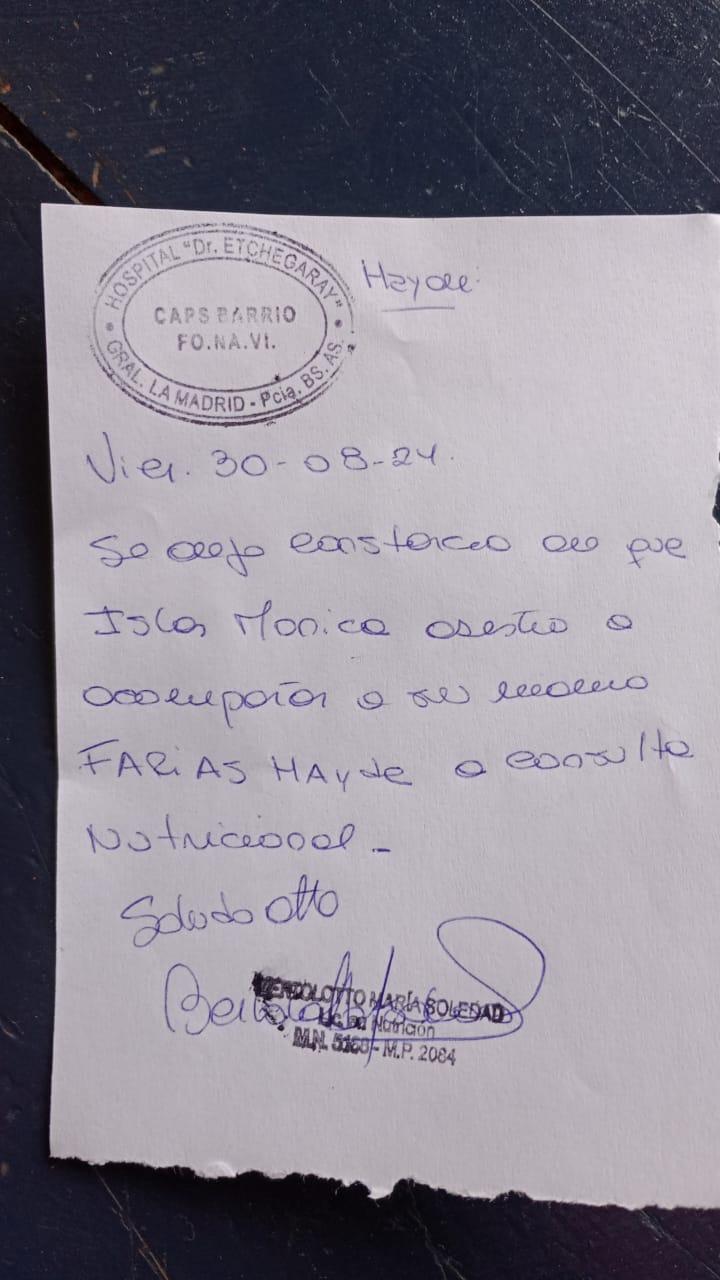 HOSPITAL "Dr. ETCHEGARAY"
CAPS BARRIO
FO.NA.VI.
GRAL. LA MADRID - Pcia. BS. AS.
Hayde.
Vier. 30-08-24.
Se deja constancia de que
Isla Monica asistio a
acompañar a su mama
FARiAS HAyde a consulta
Nutricional -
Saludo Atto
BERTOLOTTO MARÍA SOLEDAD
Lic. en Nutrición
M.N. - M.P. 2084